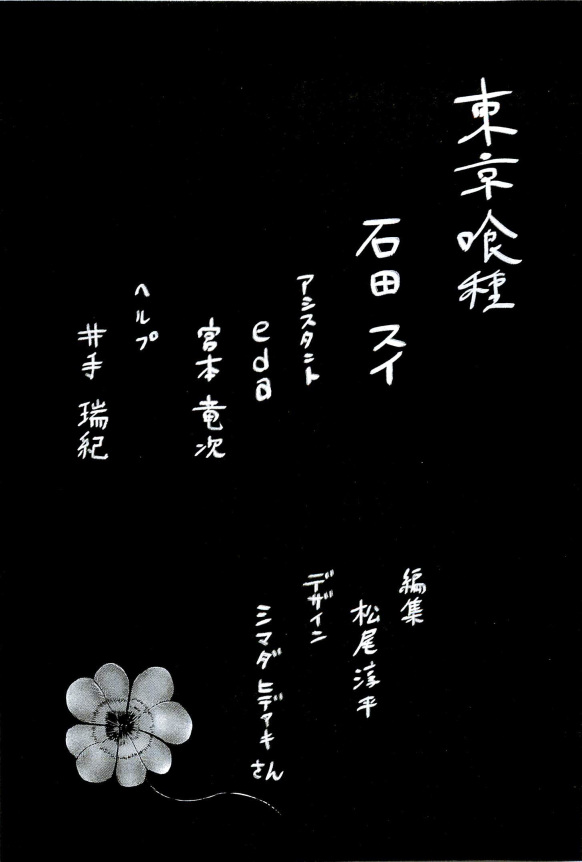 東京喰種
石田 スイ
アシスタント
eda
宮本 竜次
ヘルプ
井手 瑞紀
編集
松尾 淳平
デザイン
シマダ ヒデアキ さん